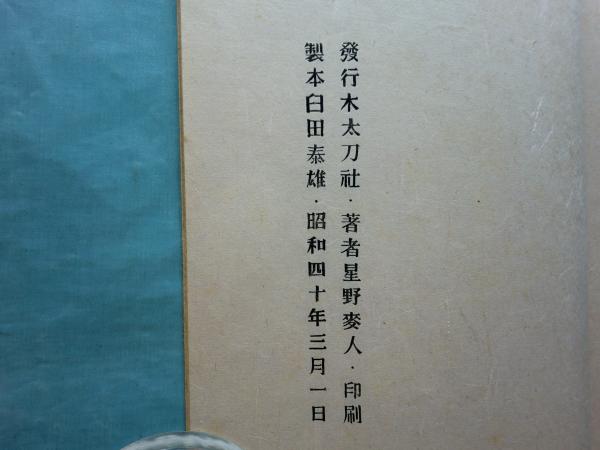 發行木太刀社・著者星野麥人・印刷
製本臼田泰雄・昭和四十年三月一日